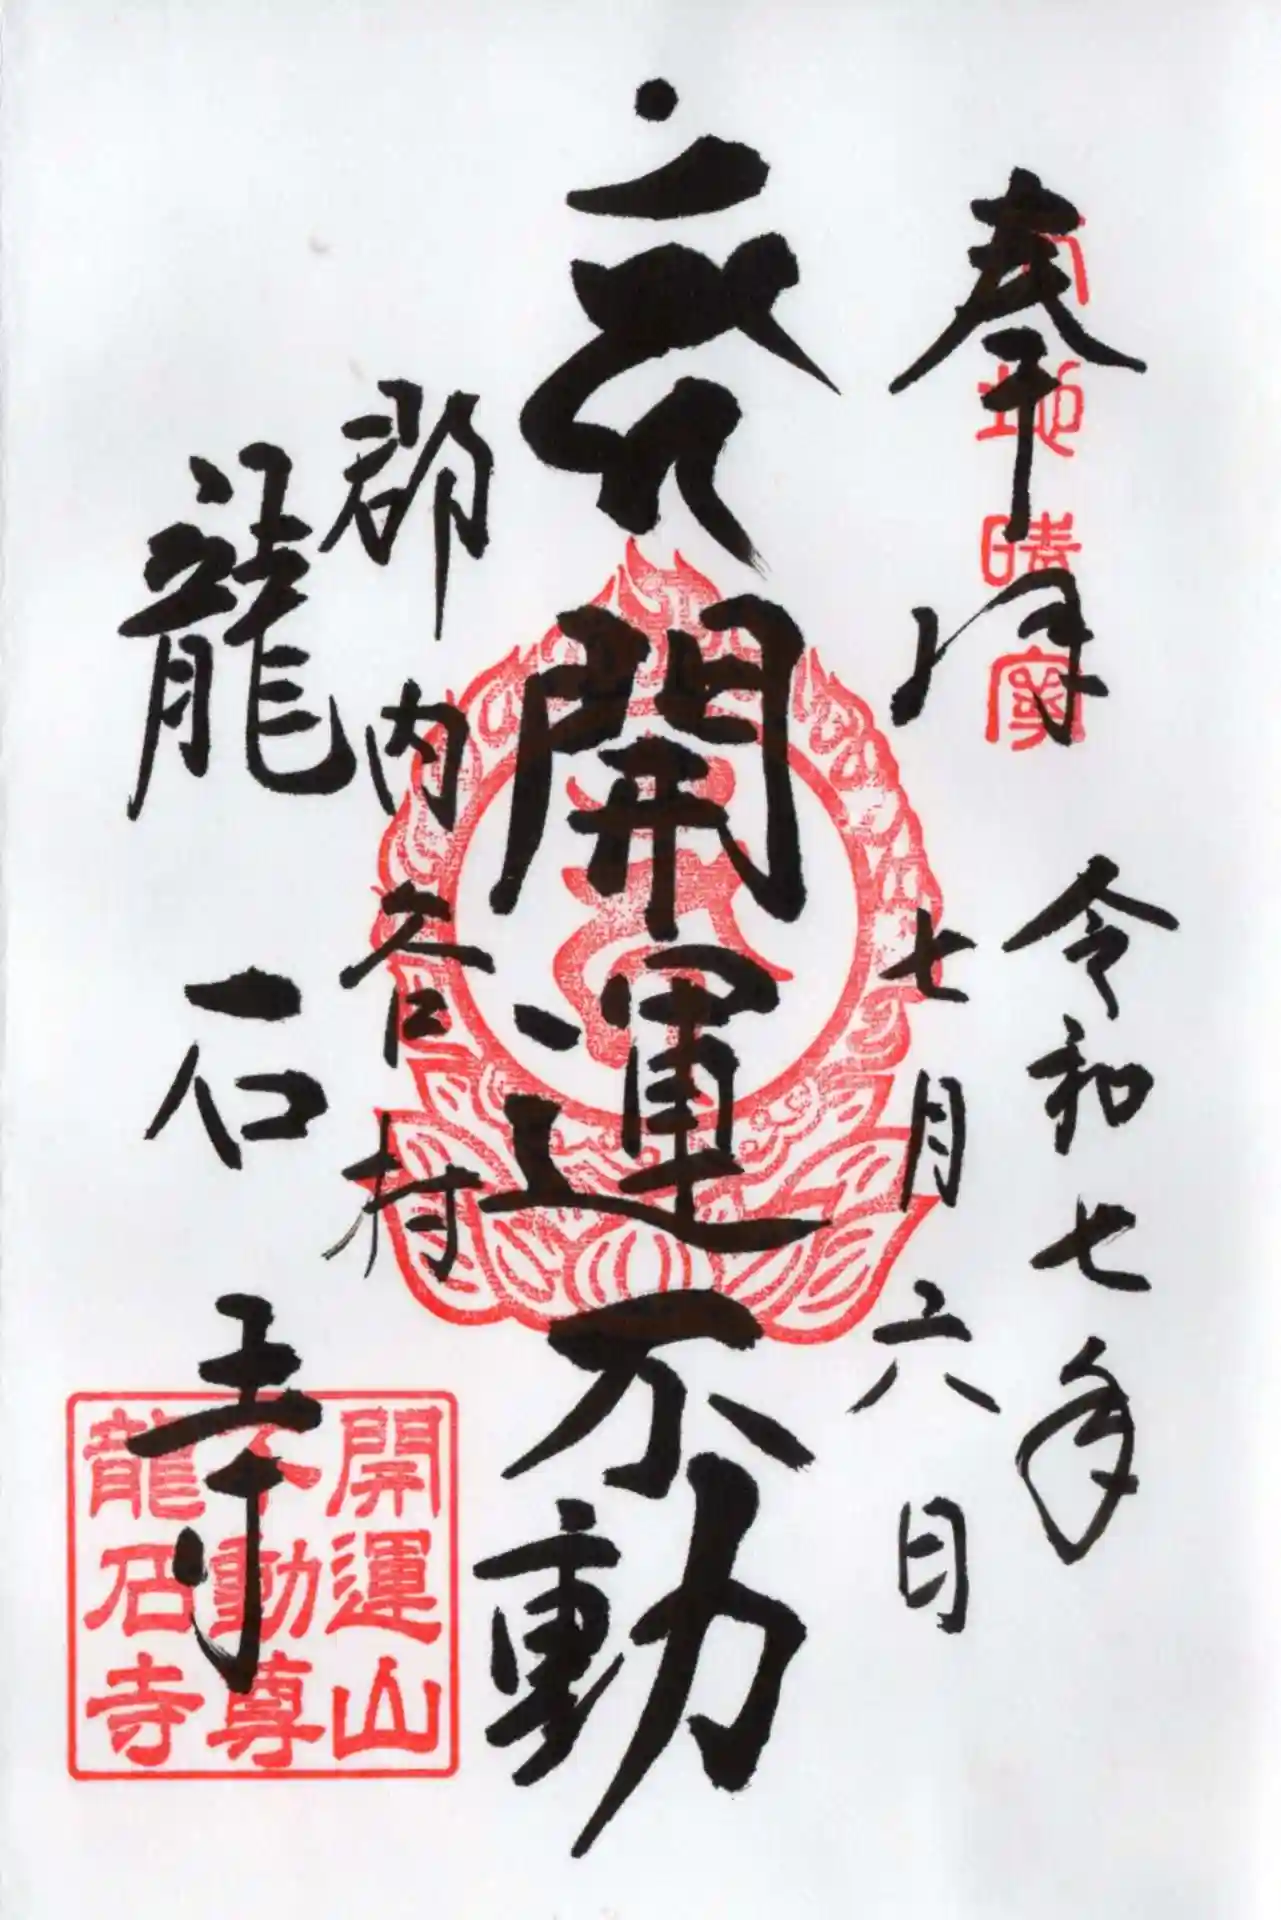 奉拝
令和七年
七月六日
開運不動
郡内谷村
龍石寺
開運山
不動尊
龍石寺